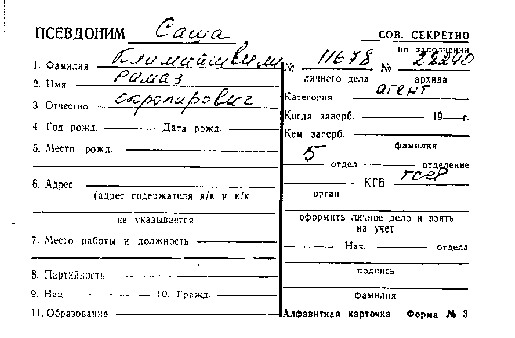 ПСЕВДОНИМ Саша
СОВ. СЕКРЕТНО
по заполнении
1. Фамилия
2. Имя Рамаз
3. Отчество
4 Год рожд. Дата рожд.
5. Место рожд.
6. Адрес
(адрес содержателя я/к и к/к
не указывается
7. Место работы и должность
8. Партийность
9. Нац 10. Гражд.
11. Образование
№ 11678 № 22240
личного дела архива
Категория агент
Когда заверб. 19 г.
Кем заверб.
фамилия
5 отдел отделение
КГБ ГССР
орган
оформить личное дело и взять
на учет
Нач. отдела
подпись
фамилия
Алфавитная карточка Форма № 3